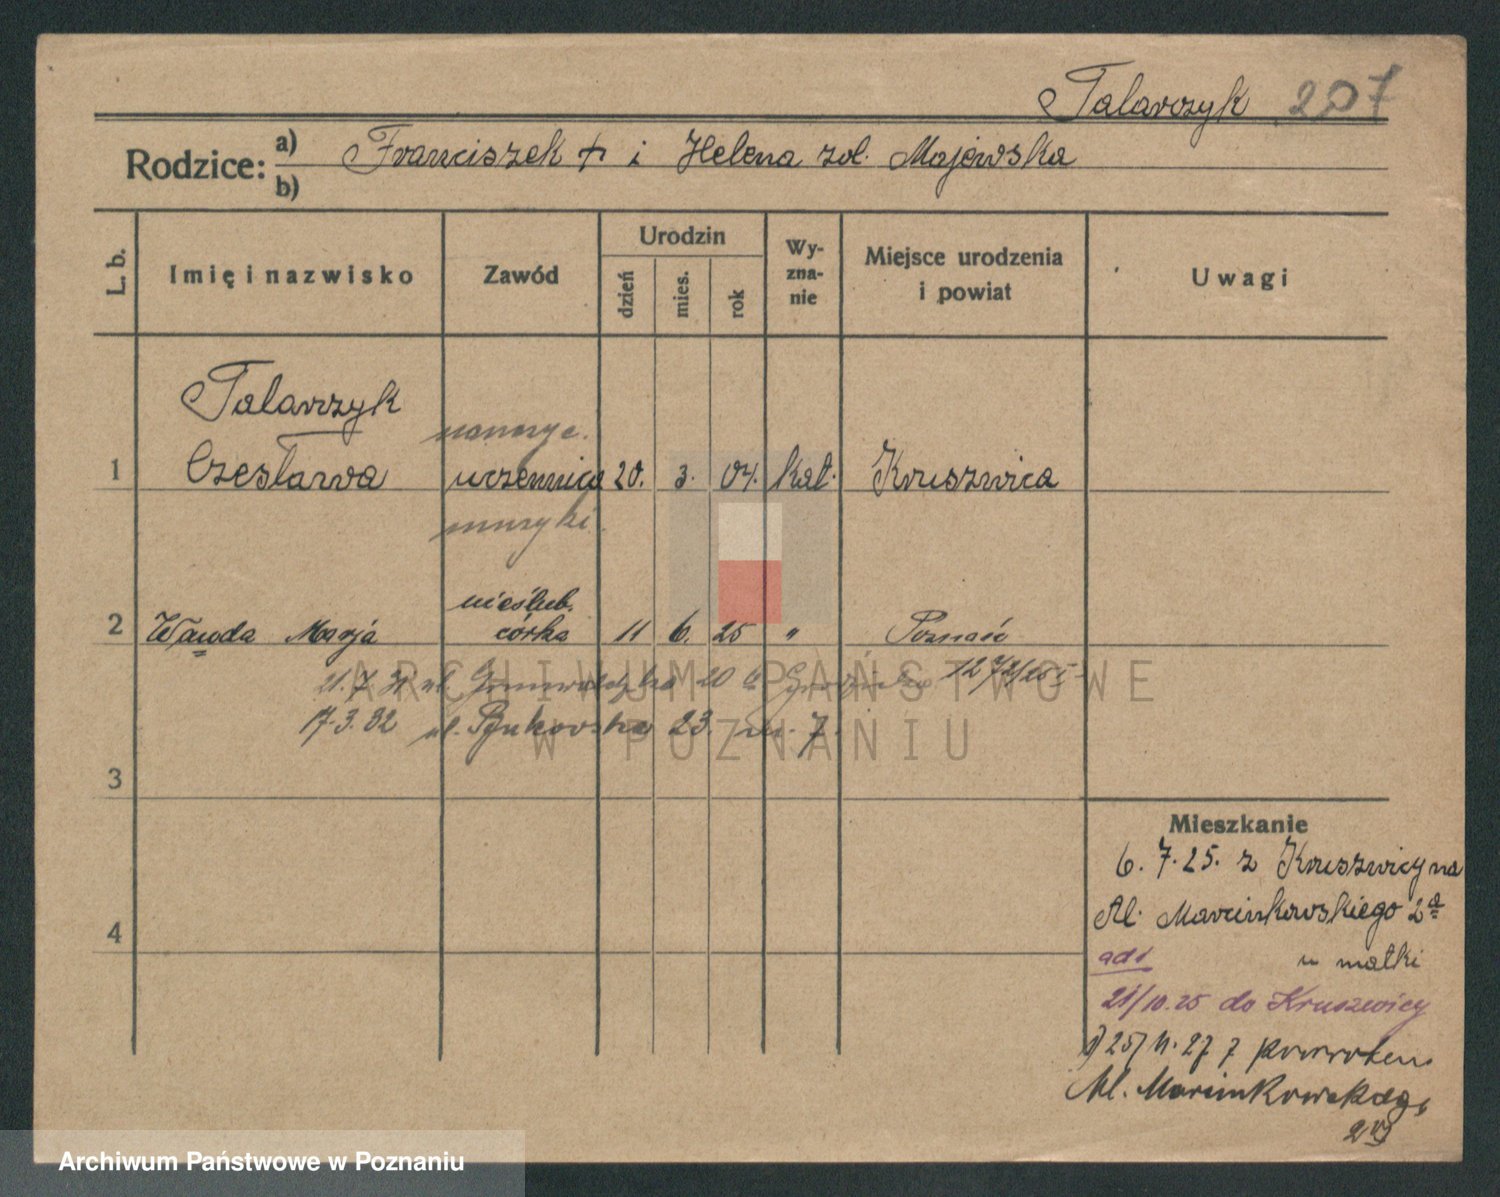 Talarczyk 207
Rodzice: a) Franciszek + i Helena zol. Majewska
b)
L. b.
Imię i nazwisko
Zawód
Urodzin
dzień
mies.
rok
Wy-
zna-
nie
Miejsce urodzenia
i powiat
Uwagi
Talarczyk
nauczyc.
1 Czesława uczennica 20. 3. 04. kat. Kruszwica
muzyki
nieślub.
2 Wanda Marja córka 11 6. 25 " Poznań
21.7.31 ul. Grunwaldzka 20
17.3.32 ul. Bukowska 23. m. 7.
3
4
Mieszkanie
6. 7. 25. z Kruszwicy na
Al. Marcinkowskiego 2a
ad1 u matki
21/10.25 do Kruszwicy
1) 25/11.27 z powrotem
Al. Marcinkowskiego
ARCHIWUM PAŃSTWOWE
W POZNANIU
Archiwum Państwowe w Poznaniu